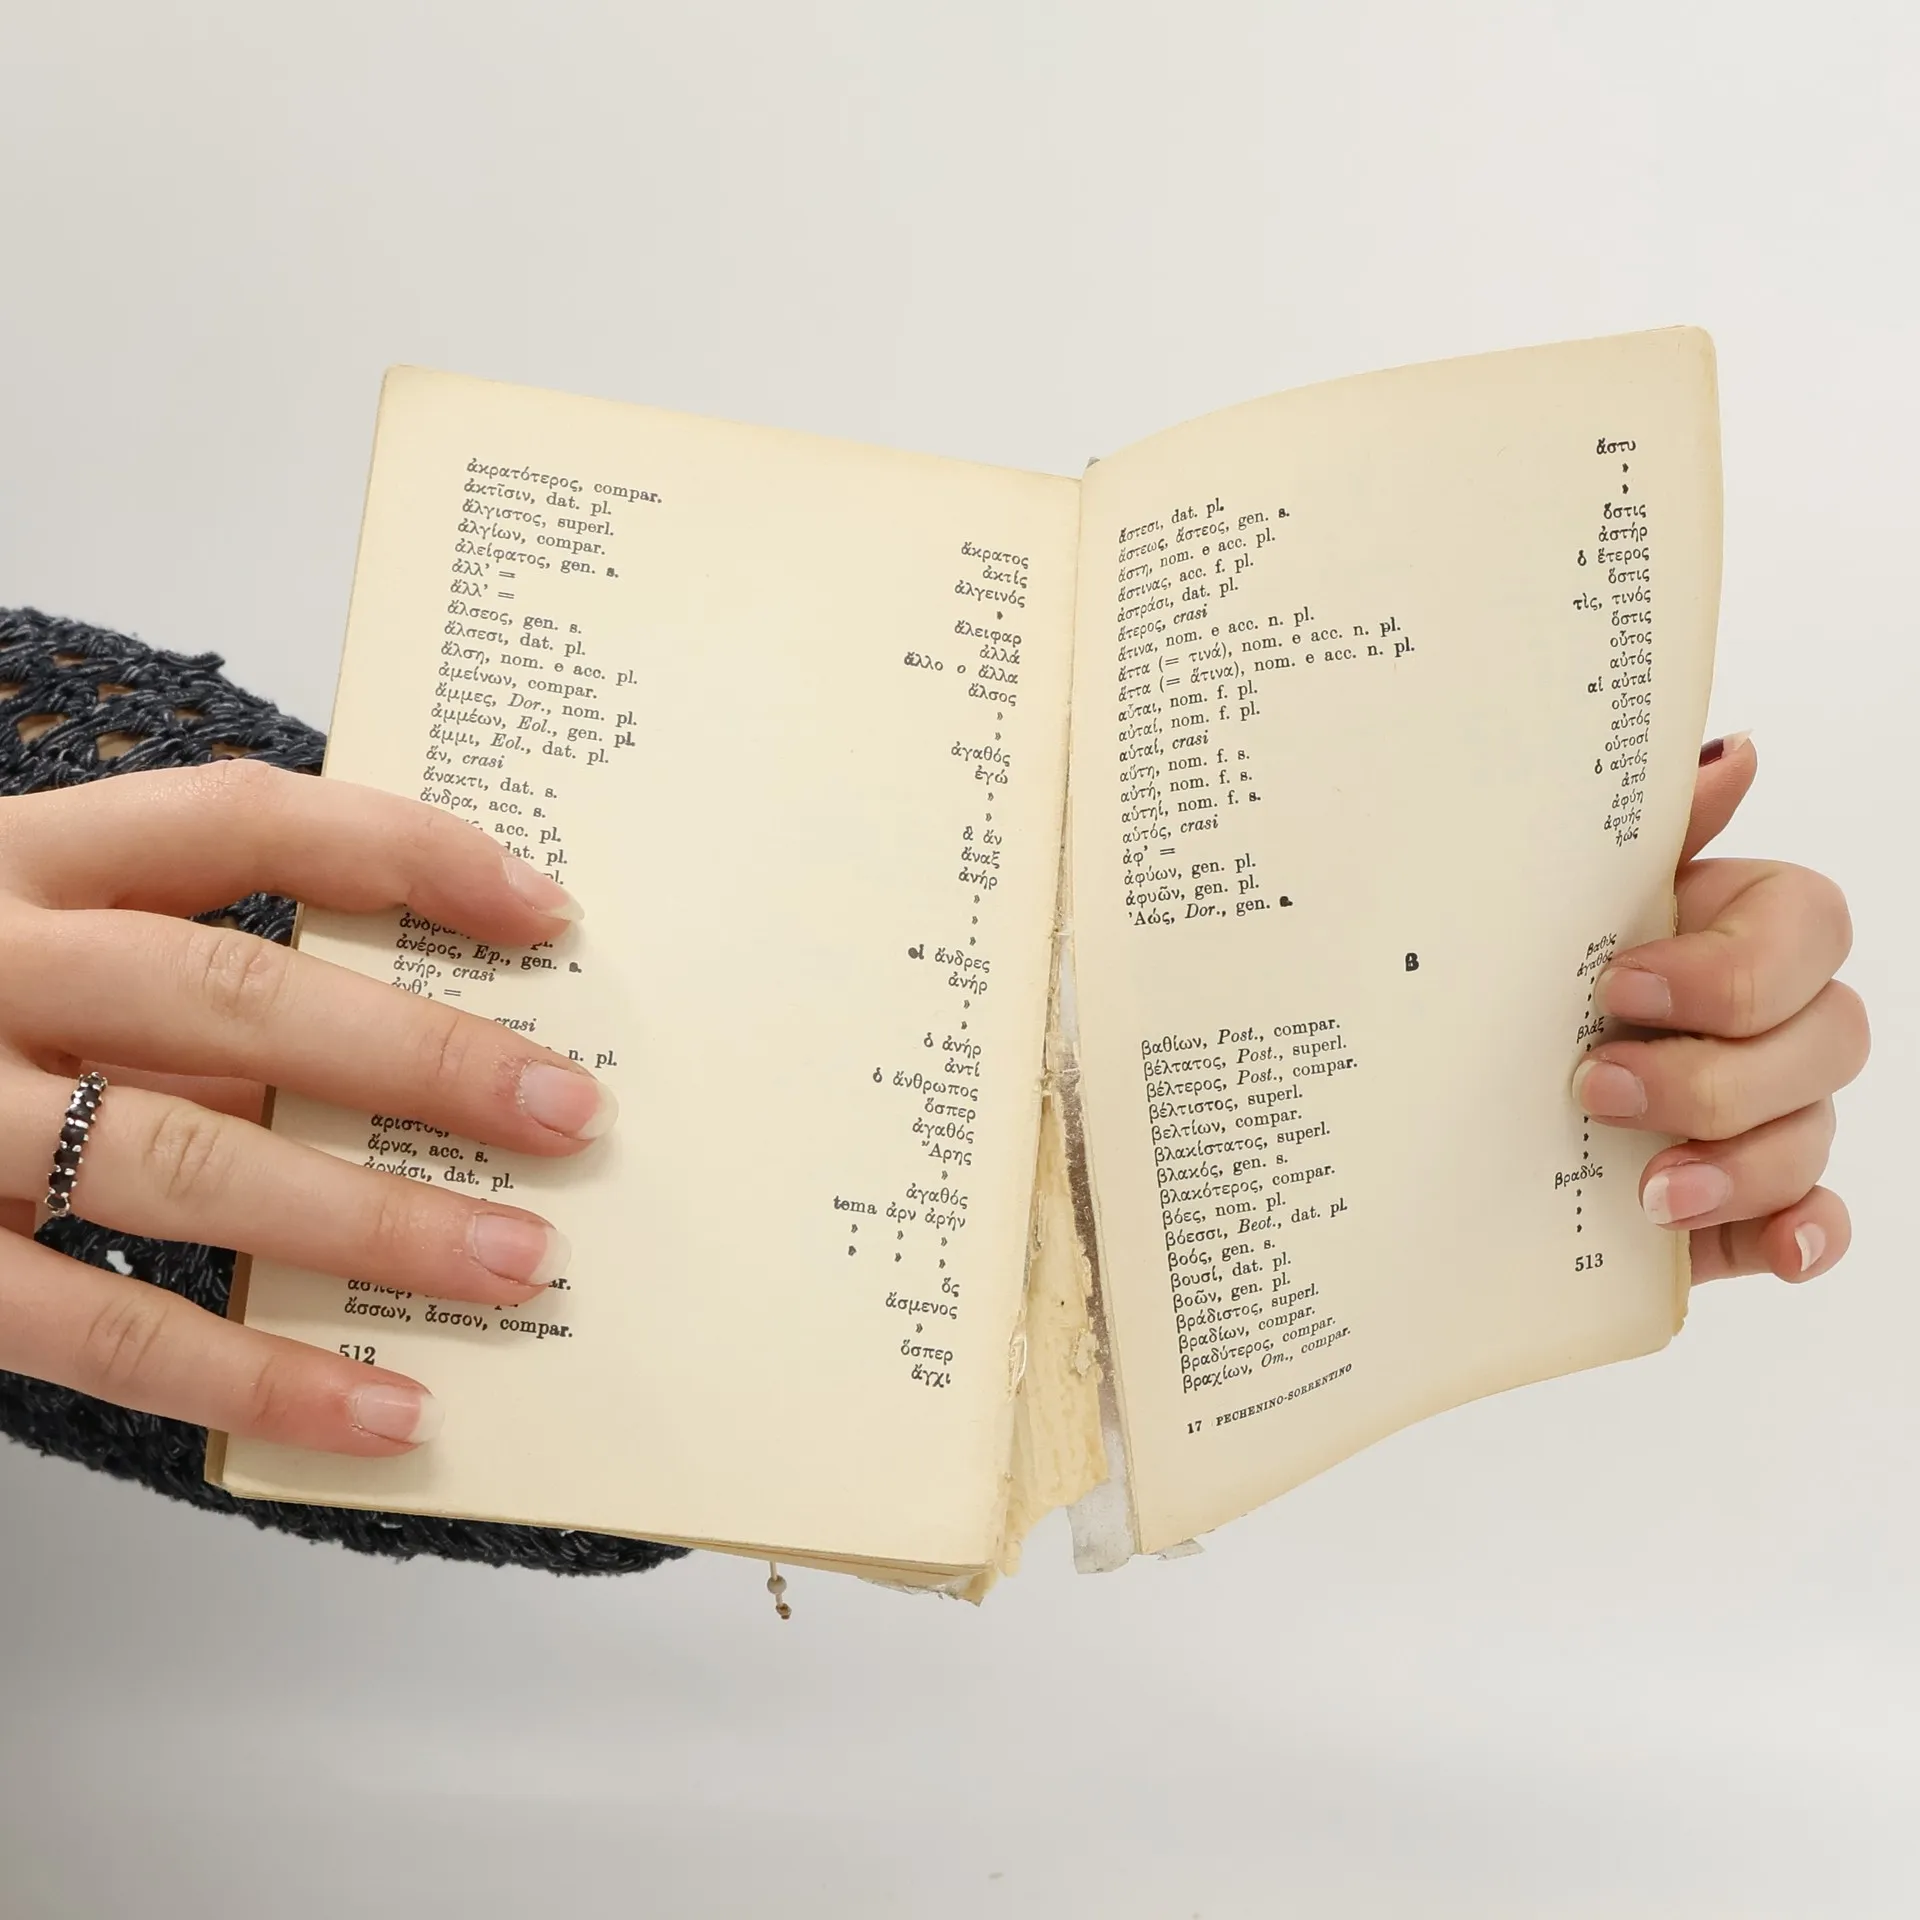 ἀκρατότερος, compar.
ἀκτῖσιν, dat. pl.
ἄλγιστος, superl.
ἀλγίων, compar.
ἀλείφατος, gen. s.
ἀλλ' =
ἄλλ' =
ἄλσεος, gen. s.
ἄλσεσι, dat. pl.
ἄλση, nom. e acc. pl.
ἀμείνων, compar.
ἄμμες, Dor., nom. pl.
ἀμμέων, Eol., gen. pl.
ἄμμι, Eol., dat. pl.
ἄν, crasi
ἄνακτι, dat. s.
ἄνδρα, acc. s.
acc. pl.
dat. pl.
pl.
pl.
ἀνέρος, Ep., gen. s.
ἁνήρ, crasi
ἀνθ', =
crasi
n. pl.
ἄριστος,
ἄρνα, acc. s.
ἀρνάσι, dat. pl.
ἄσσων, ἆσσον, compar.
512
ἄκρατος
ἀκτίς
ἀλγεινός
»
ἄλειφαρ
ἀλλά
ἄλλο o ἄλλα
ἄλσος
»
»
ἀγαθός
ἐγώ
»
»
ἃ ἄν
ἄναξ
ἀνήρ
»
»
»
οἱ ἄνδρες
ἀνήρ
»
»
ὁ ἀνήρ
ἀντί
ὁ ἄνθρωπος
ὅσπερ
ἀγαθός
Ἄρης
»
ἀγαθός
tema ἀρν ἀρήν
» » »
» » »
ὅς
ἄσμενος
»
ὅσπερ
ἄγχι
ἄστεσι, dat. pl.
ἄστεως, ἄστεος, gen. s.
ἄστη, nom. e acc. pl.
ἅστινας, acc. f. pl.
ἀστράσι, dat. pl.
ἅτερος, crasi
ἅτινα, nom. e acc. n. pl.
ἄττα (= τινά), nom. e acc. n. pl.
ἅττα (= ἅτινα), nom. e acc. n. pl.
αὗται, nom. f. pl.
αὐταί, nom. f. pl.
αὑταί, crasi
αὕτη, nom. f. s.
αὐτή, nom. f. s.
αὑτηί, nom. f. s.
αὑτός, crasi
ἀφ' =
ἀφύων, gen. pl.
ἀφυῶν, gen. pl.
Ἀώς, Dor., gen. s.
ἄστυ
»
»
ὅστις
ἀστήρ
ὁ ἕτερος
ὅστις
τὶς, τινός
ὅστις
οὗτος
αὐτός
αἱ αὐταί
οὗτος
αὐτός
οὑτοσί
ὁ αὐτός
ἀπό
ἀφύη
ἀφυής
ἠώς
B
βαθίων, Post., compar.
βέλτατος, Post., superl.
βέλτερος, Post., compar.
βέλτιστος, superl.
βελτίων, compar.
βλακίστατος, superl.
βλακός, gen. s.
βλακότερος, compar.
βόες, nom. pl.
βόεσσι, Beot., dat. pl.
βοός, gen. s.
βουσί, dat. pl.
βοῶν, gen. pl.
βράδιστος, superl.
βραδίων, compar.
βραδύτερος, compar.
βραχίων, Om., compar.
βαθύς
ἀγαθός
»
»
βλάξ
»
»
»
»
βραδύς
»
»
»
513
17 PECHENINO-SORRENTINO